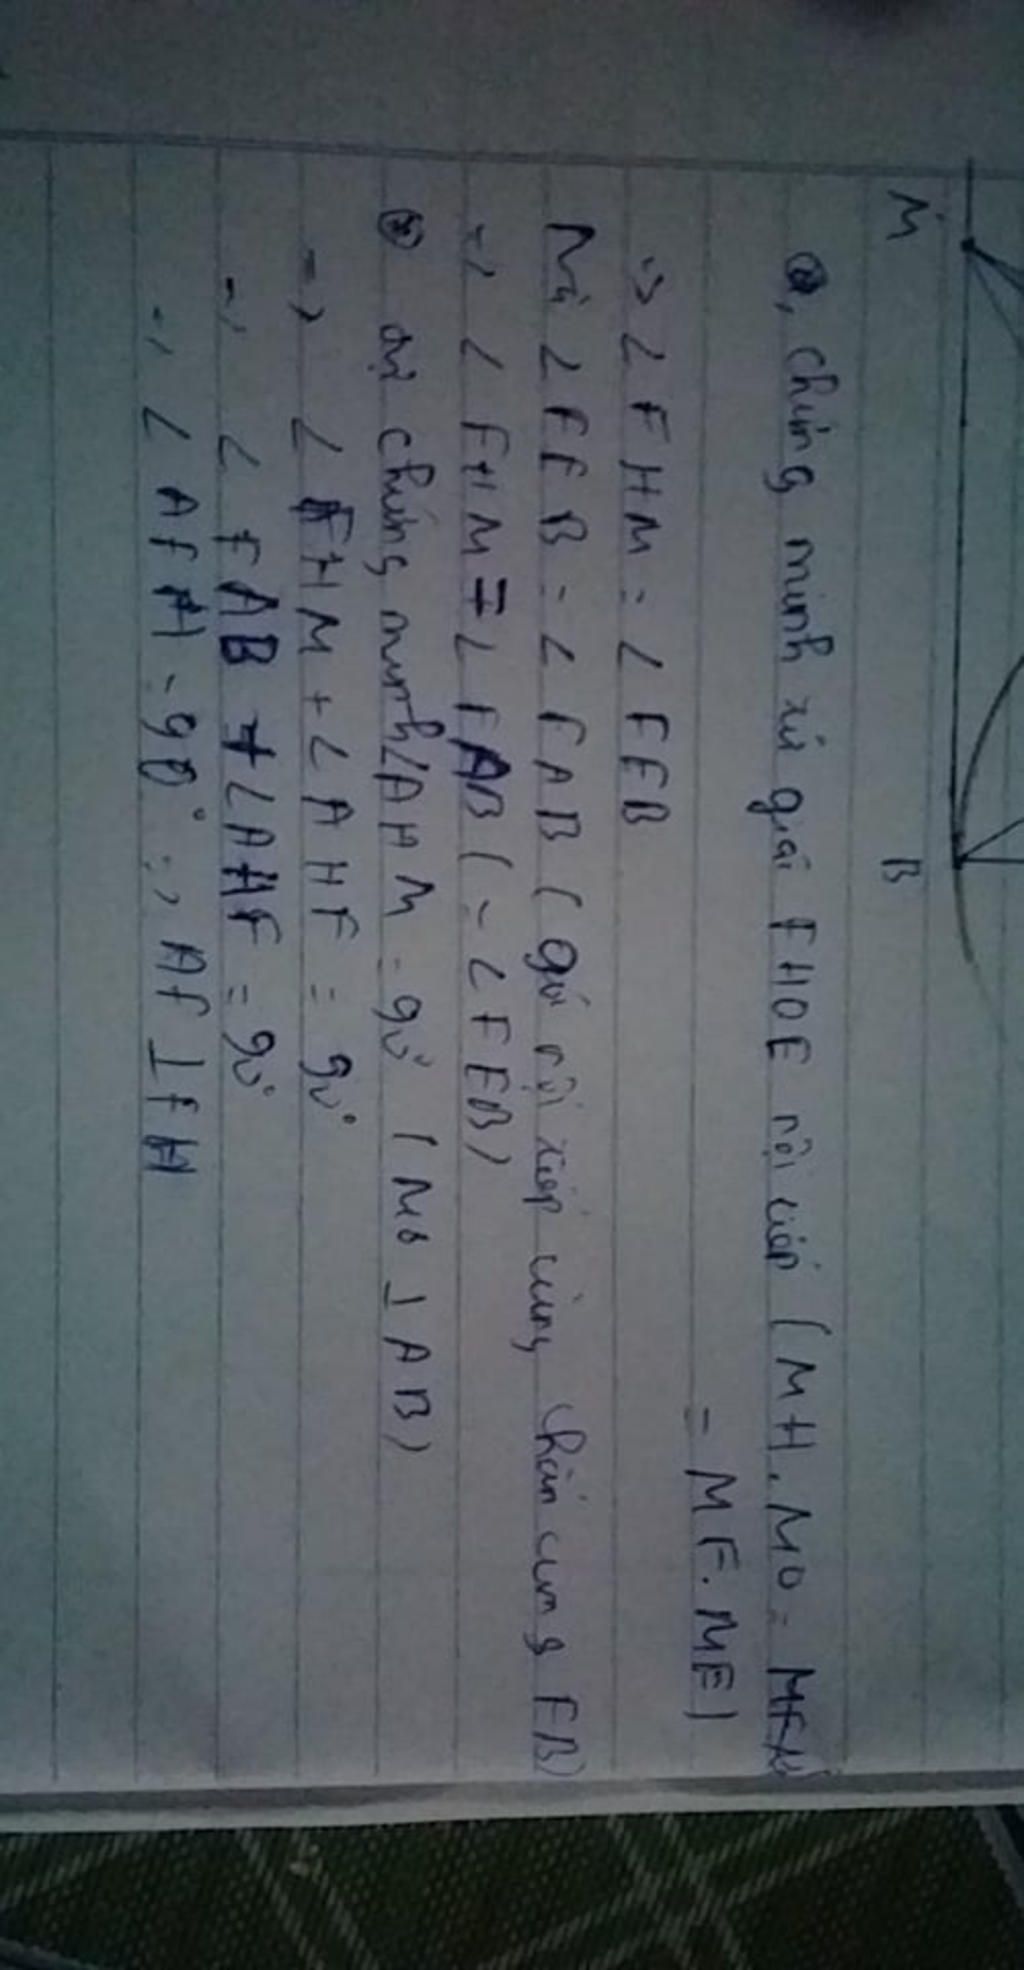 M B
, chứng minh tứ giác FHOE nội tiếp (MH.MO =
= MF.ME)
=> ∠FHM = ∠FEB
Mà ∠FEB = ∠FAB (góc nội tiếp cùng chắn cung FB)
=> ∠FHM = ∠FAB (= ∠FEB)
chứng minh ∠AHM = 90° (MO ⊥ AB)
=> ∠FHM + ∠AHF = 90°
=> ∠FAB + ∠AHF = 90°
=> ∠AFH = 90° => AF ⊥ FH